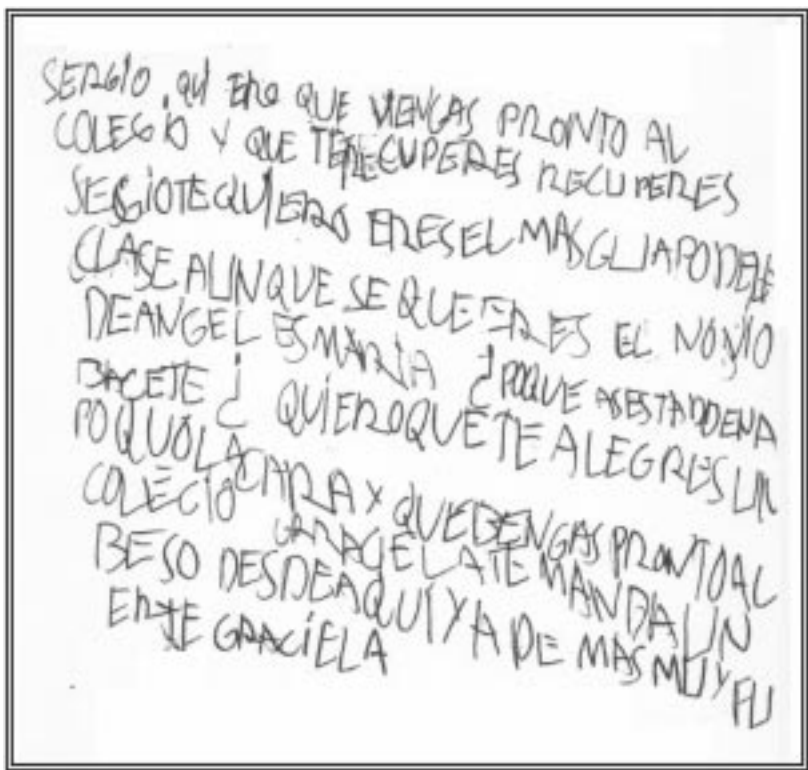 SERGIO, QUIERO QUE VIENGAS PRONTO AL
COLEGIO Y QUE TERECUPERES RECUPERES
SERGIOTEQUIERO ERESEL MASGUAPODELE
CLASE AUNQUE SE QUE ERES EL NOVIO
DEANGELES MARIA ¿POQUE ASESTADOENA
BACETE ¿ QUIEROQUETE ALEGRES UN
POQUOLACARA Y QUEBENGAS PRONTOAL
COLEGIO GRACELATE MANDA UN
BESO DESDEAQUI Y A DE MAS MUY FU
ERTE GRACIELA